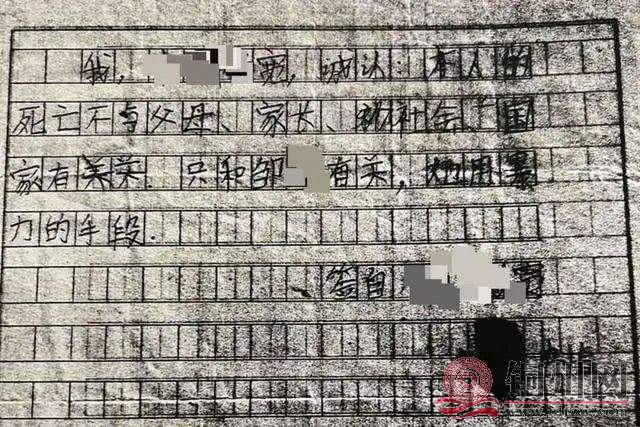 我，宽，诚认：本人的
死亡不与父母、家长、社会、国
家有关. 只和邹有关，她用暴
力的手段.
签自